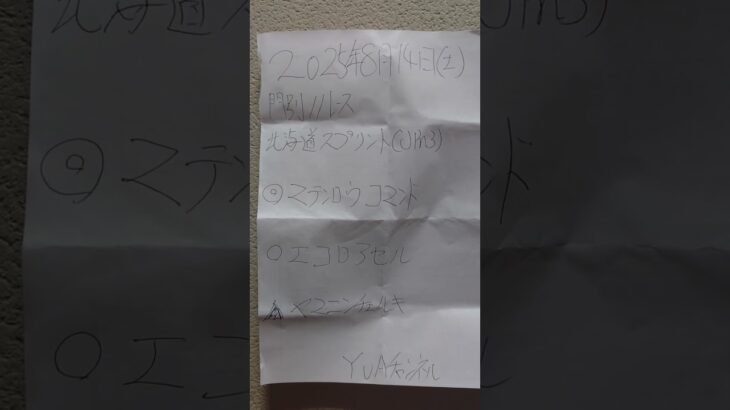 2025年8月14日(土)
門別11レース
北海道スプリント(Jpn3)
◎マテンロウコマンド
○エコロアゼル
▲ヤマニンチェルキ
YUAチャンネル